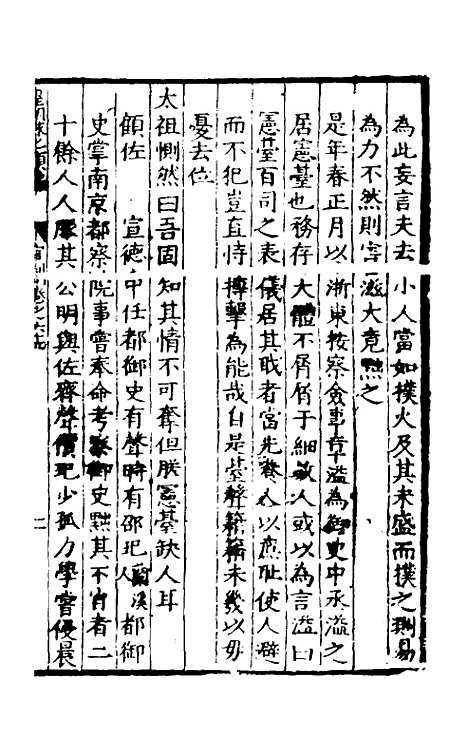 為此妄言夫去小人當如撲火及其未盛而撲之則易
為力不然則害滋大竟黜之
是年春正月以浙東按察僉事章溢為御史中丞溢之
居憲臺也務存大體不屑屑于細故人或以為言溢曰
憲臺百司之表儀居其職者當先養人以廉耻使人避
而不犯豈直恃搏擊為能哉自是臺聲籍籍未幾以毋
憂去位
太祖惻然曰吾固知其情不可奪但朕憲臺缺人耳
顧佐 宣德中任都御史有聲時有邵玘蘭溪人都御
史掌南京都察院事嘗奉命考察御史黜其不肖者二
十餘人人服其公明與佐齊聲價玘少孤力學嘗侵晨
二